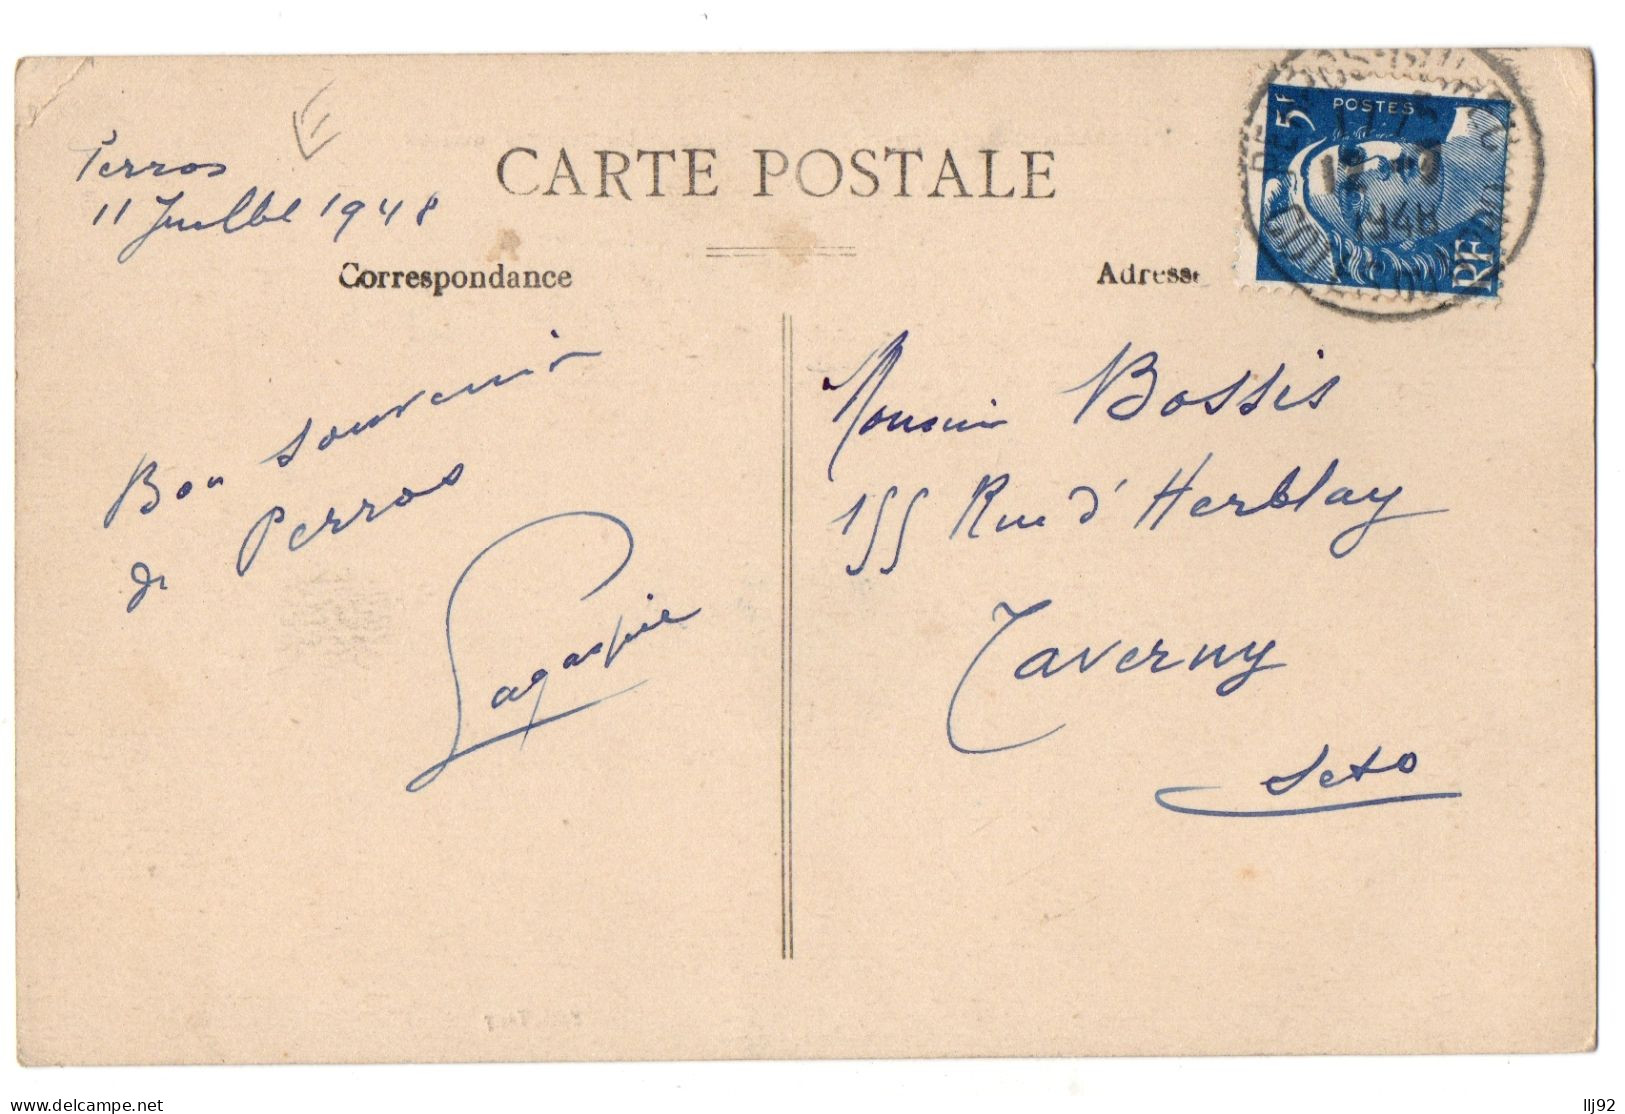 Perros
11 Juillet 1948
CARTE POSTALE
Correspondance
Adresse
5F POSTES
RF
1948
Bon souvenir
de Perros
Monsieur Bossis
155 Rue d'Herblay
Taverny
S et O
www.delcampe.net
llj92